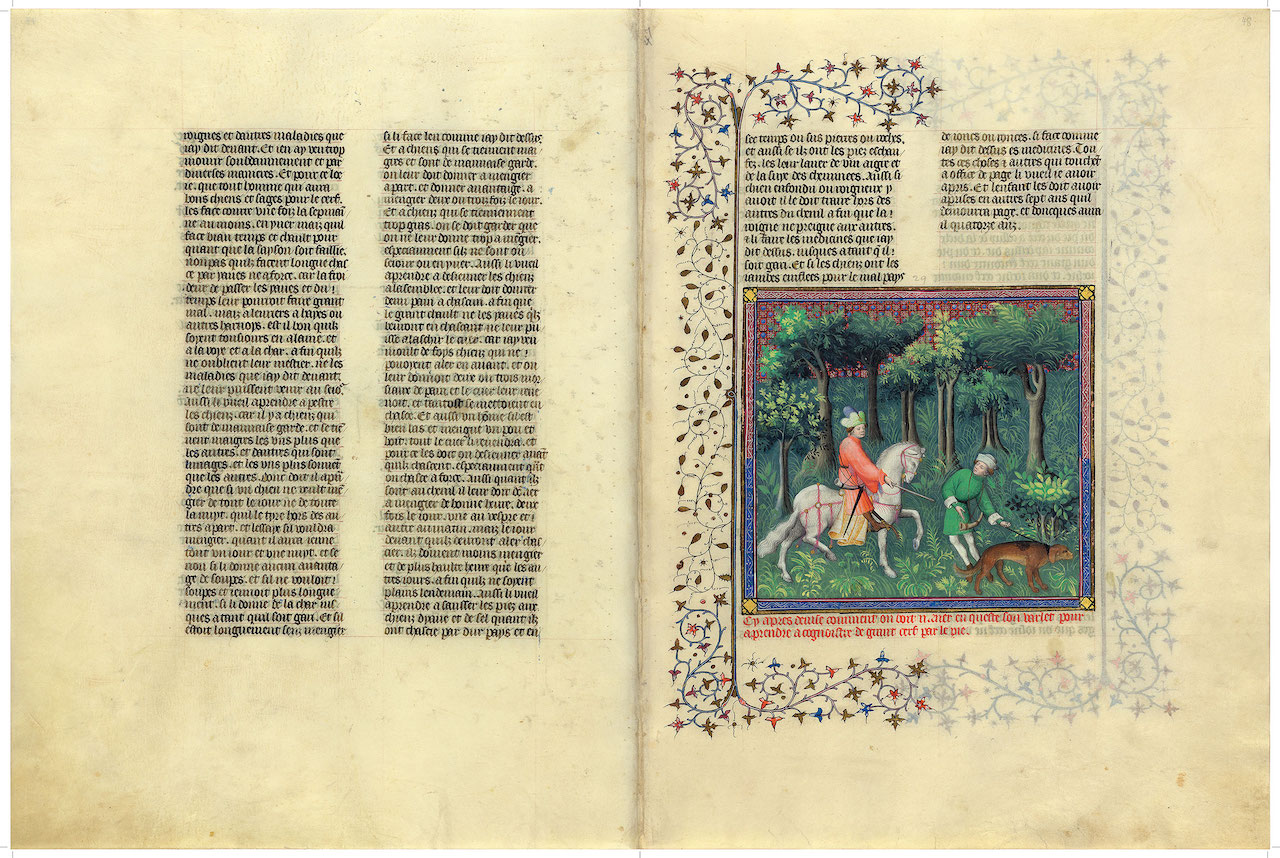 roignes et dautres maladies que
iay dit deuant. Et ien ay veu trop
mourir soubdainnement et par
diuerses manieres. Et pour ce loe
ie. que tout homme qui aura
bons chiens et sages pour le cerf.
les face courre vne foiz la sepmai
ne au moins. en yuer maiz quil
face biau temps et chault pour
quant que la sayson soit faillie.
non pas quilz facent longue chas
ce par yaues ne a force. car la froi
deur de passer les yaues et du
temps leur pourroit faire grant
mal. maiz a leuriers a hayes ou
autres harnoys. est il bon quilz
soyent tousiours en alaine. et
a la voye et a la char. a fin quilz
ne oublient leur mestier. ne les
maladies que iay dit deuant
ne leur puissent venir au seior
aussi li vueil aprendre a pestre
les chienz. car il y a chienz qui
sont de mauuaise garde. et se tie
nent maigres les vns plus que
les autres. et dautres qui sont
limages. et les vns plus souuent
que les autres. Donc doit il apre
dre que si vn chien ne veult me
gier de tout le iour ne de toute
la nuyt. quil le tyre hors des au
tres a part. et lessaye sil vouldra
mengier. quant il aura ieune
tout vn iour et vne nuyt. et se
non si li donne aucun auanta
ge de soupes. et sil ne vouloit
soupes et ieunoit plus longue
ment. si li donne de la char ius
ques a tant quil soit gari. Et sil
estoit longuement senz mengier
si li face len comme iay dit dessus.
Et a chiens qui se tiennent mai
gres et sont de mauuaise garde.
on leur doit donner a mengier
a part. et donner auantaige. a
mengier deux ou troiz foiz le iour.
Et a chiens qui se tiennent
trop gras. on se doit garder que
on ne leur donne trop a mengier.
especiaument silz ne sont ou
seiour ou en yuer. Aussi li vueil
aprendre a desieuner les chienz
a lasemblee. et leur doit donner
demi pain a chascun. a fin que
le grant chault ne les yaues quilz
beuront en chascant ne leur pu
isse a laschir le cuer. car iay veu
moult de foys chienz qui ne
pouoyent aler en auant. et on
leur donnoit deux ou trois mor
siaux de pain. et le cuer leur reue
noit. et tantost se mettoyent en
chasce. Et aussi vn home sil est
bien las et mengut vn pou et
boit. tout le cuer li reuendra. et
pour ce les doit on desieuner auant
quilz chascent. especiaument quat
on chasce a force. Aussi quant ilz
sont au chenil il leur doit doner
a mengier de bonne heure. deux
fois le iour. vne au vespre et
autre au matin. maiz le iour
deuant quilz deuront aler chas
cier. ilz doiuent moins mengier
et de plus haulte heure que les au
tres iours. a fin quilz ne soyent
plains lendemain. Aussi li vueil
aprendre a saussier les piez aux
chienz dyaue et de sel quant ilz
ont chasce par dur pays et en
sec temps ou sus pierres ou roches.
et aussi se ilz ont les piez eschau
fez. les leur lauer de vin aigre et
de la suye des cheminees. Aussi si
chien enfondu ou roigneux y
auoit il le doit traire hors des
autres du chenil a fin que la
roigne ne preigne aux autres.
a li faire les medicines que iay
dit dessus. iusques a tant quil
soit gari. Et si les chienz ont les
iambes enflees pour le mal pays
de ioncs ou ronces. si face comme
iay dit dessus es medicines. Tou
tes ces choses et autres qui touchet
a office de page li vueil ie auoir
apris. Et lenfant les doit auoir
aprises en autres sept ans quil
demourra page. et doncques aura
il quatorze anz.
Cy apres deuise comment on doit mener en queste son varlet pour
aprendre a cognoistre de grant cerf par le pie.